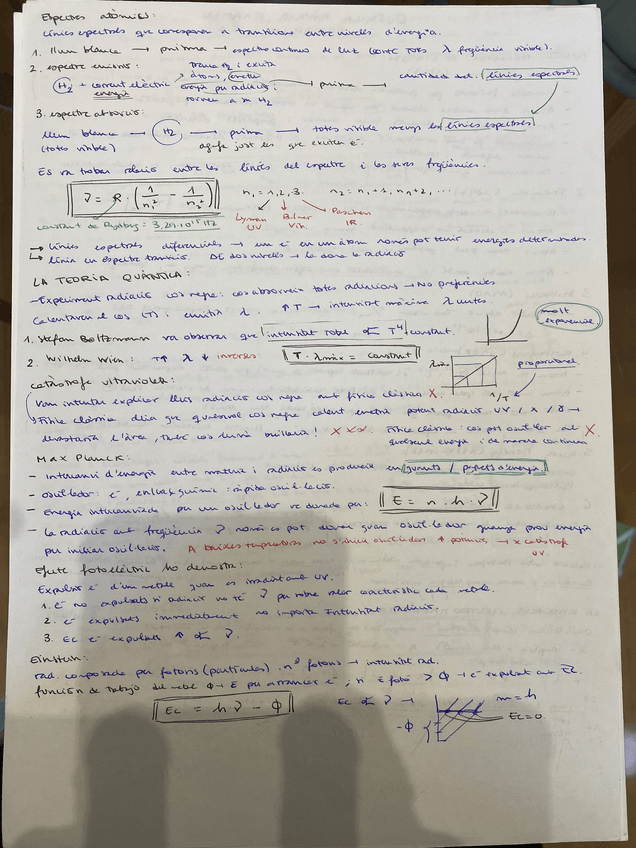 Espectres atòmics:
Línies espectrals que corresponen a transicions entre nivells d'energia.
1. Llum blanca → prisma → espectre continu de luz (conté totes λ freqüència visible).
2. espectre emissió:
trenca H2 i excita
àtoms, emeten
H2 + corrent elèctric → energia per radiació, → prisma → cantidad det. línies espectrals
energia
tornen a ser H2
3. espectre absorció:
llum blanca → H2 → prisma → totes visible menys les línies espectrals
(totes visible) agafa just les que exciten e⁻.
Es va trobar relació entre les línies del espectre i les seves freqüències.
ν = R · (1/n₁² − 1/n₂²) n₁ = 1, 2, 3. n₂ = n₁+1, n₁+2, ...
Lyman Balmer Paschen
UV Vis. IR.
constant de Rydberg: 3,29·10¹⁵ Hz
→ línies espectrals diferencials → un e⁻ en un àtom només pot tenir energies determinades.
→ línia en espectre transició DE dos nivells → la dona la radiació
LA TEORIA QUÀNTICA:
- Experiment radiació cos negre: cos absorveix totes radiacions → No preferències
Calentaren el cos (T) i emitia λ. ↑T → intensitat màxima λ curtes.
molt exponencial.
1. Stefan Boltzmann va observar que intensitat total ∝ T⁴ constant.
2. Wilhelm Wien: T↑ λ↓ inverses T · λmàx = constant
λmàx
1/T
proporcional
catàstrofe ultravioleta:
Van intentar explicar lleis radiació cos negre amb física clàssica X.
Física clàssica deia que qualsevol cos negre calent emetria potent radiació UV / X / γ →
devastaria l'àrea, també cos humà brillaria! XXX.
Física clàssica: cos pot oscil·lar al X.
qualsevol energia i de manera contínua
Max Planck:
- Intercanvi d'energia entre matèria i radiació es produeix en quants / paquets d'energia.
- oscil·lador: e⁻, enllaç químic: ràpida oscil·lació.
- Energia intercanviada per un oscil·lador ve donada per: E = n · h · ν
- la radiació amb freqüència ν només es pot donar quan oscil·lador guanya prou energia
per iniciar oscil·lació. A baixes temperatures no s'inicia → X catàstrofe
UV.
Efecte fotoelèctric ho demostra:
Expulsió e⁻ d'un metall quan es irradiat amb UV.
1. e⁻ no expulsats si radiació no té ν per sobre valor característic cada metall.
2. e⁻ expulsats immediatament no importa Intensitat radiació.
3. Ec e⁻ expulsats ↑ ∝ ν.
Einstein:
rad. composada per fotons (partícules). nº fotons → intensitat rad.
función de trabajo del metall Φ → E per arrancar e⁻, si E fotó > Φ → e⁻ expulsat amb Ec.
Ec = hν − Φ Ec ∝ ν →
m = h
Ec=0
-Φ